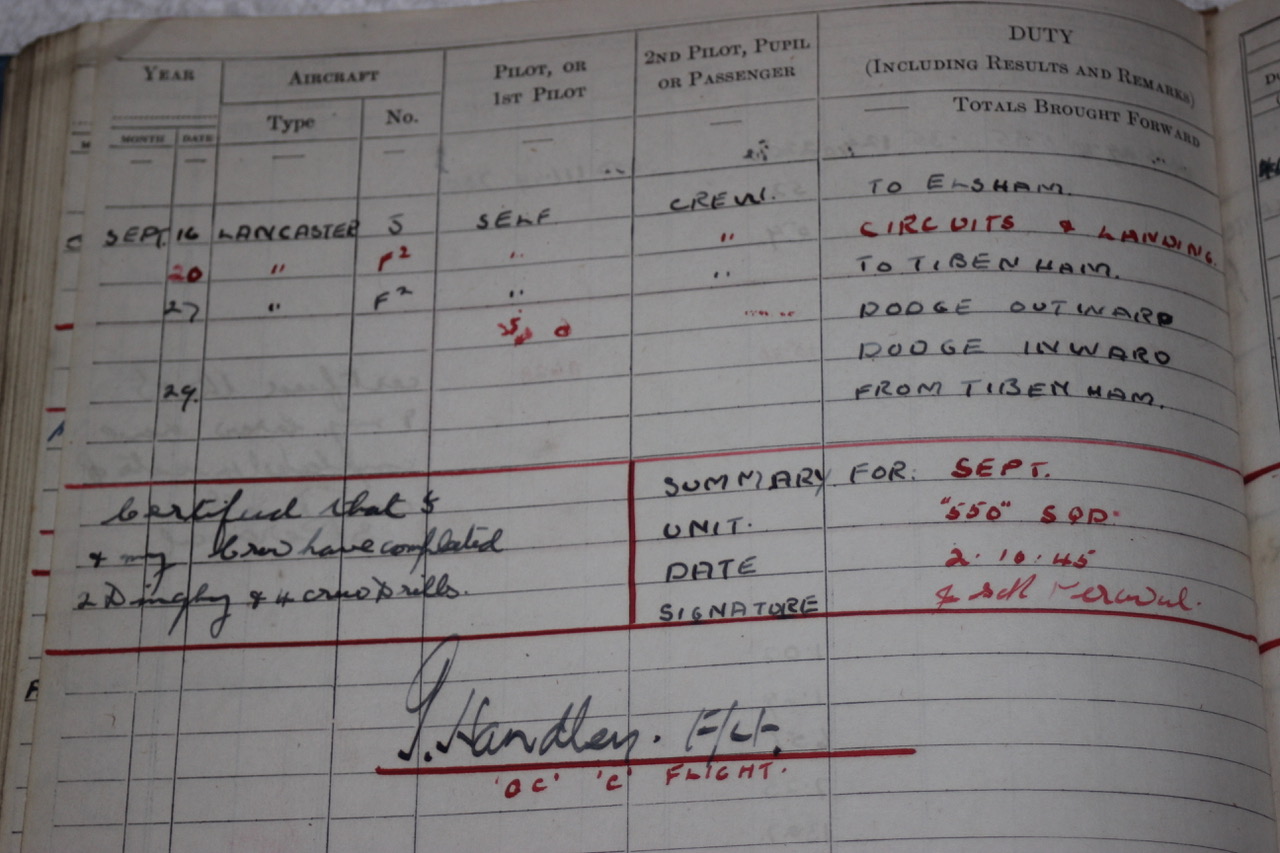 YEAR AIRCRAFT PILOT, OR 1ST PILOT 2ND PILOT, PUPIL OR PASSENGER DUTY (INCLUDING RESULTS AND REMARKS)
MONTH DATE Type No.
— — — — — — — TOTALS BROUGHT FORWARD
SEPT. 16 LANCASTER J SELF CREW. TO ELSHAM.
20 " F2 " " CIRCUITS & LANDING.
27 " F2 " " TO TIBENHAM.
DODGE OUTWARD
DODGE INWARD
29. FROM TIBENHAM.
Certified that I
& my Crew have completed
2 Dinghy & 4 crew Drills.
SUMMARY FOR: SEPT.
UNIT. "550" SQD.
DATE 2.10.45
SIGNATURE
J. Handley. F/Lt.
'OC' 'C' FLIGHT.